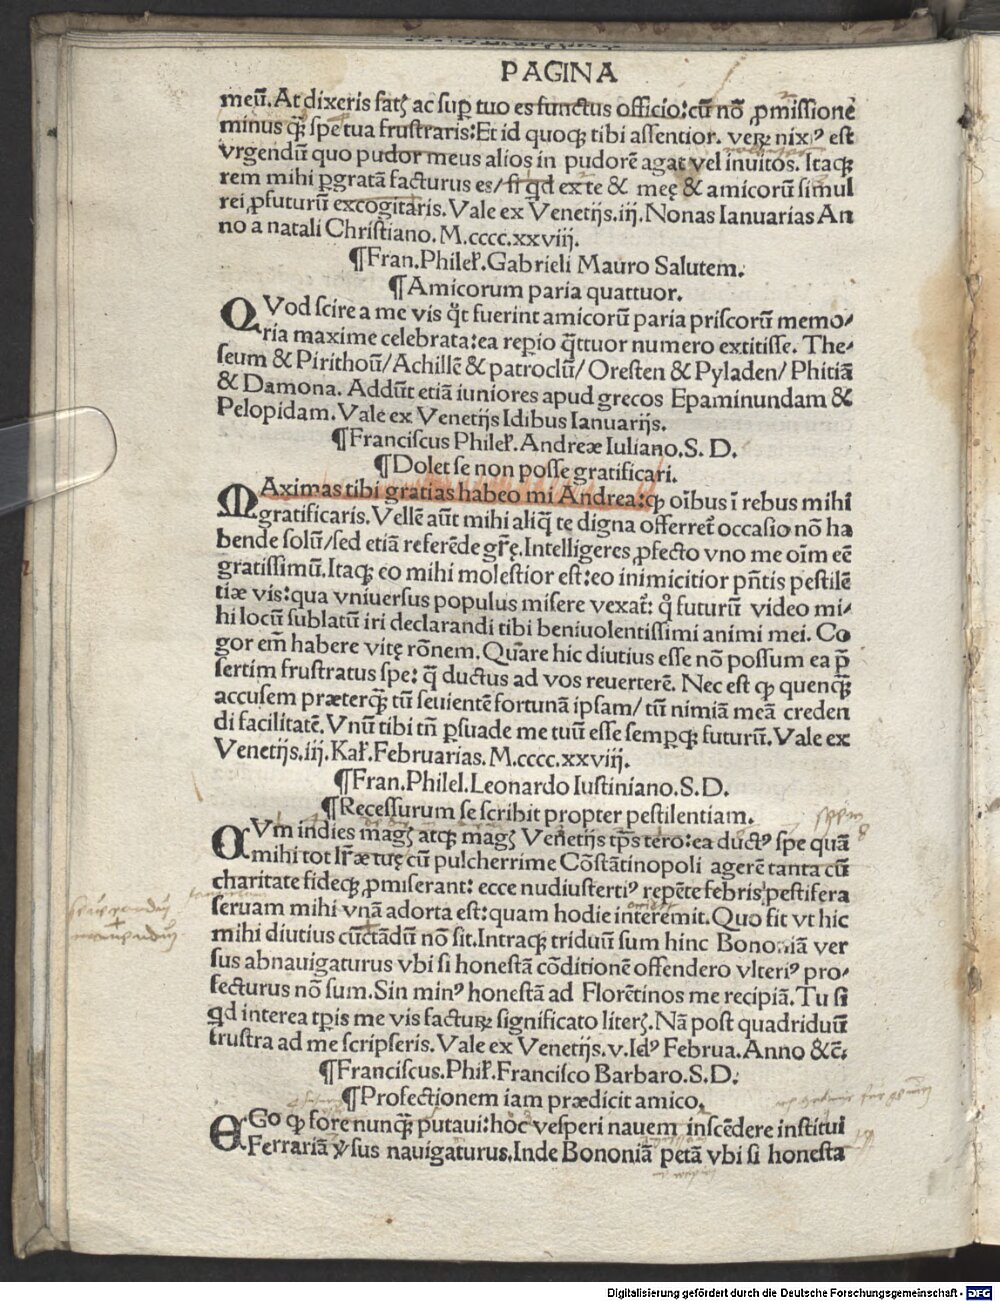 PAGINA
meū. At dixeris satꝭ ac suꝑ tuo es functus officio: cū nō ꝓmissione
minus qꝫ̃ spe tua frustraris: Et id quoqꝫ tibi assentior. veꝝ nixꝰ est
vrgendū quo pudor meus alios in pudorē agat vel inuitos. Itaqꝫ
rem mihi ꝑgratā facturus es/ si qd̄ ex te & meę & amicorū simul
rei ꝓfuturū excogitaris. Vale ex Venetijs. iij. Nonas Ianuarias An
no a natali Christiano. M.cccc.xxviij.
¶Fran. Philel̉. Gabrieli Mauro Salutem.
¶Amicorum paria quattuor.
QVod scire a me vis q̄t fuerint amicorū paria priscorū memo⸗
ria maxime celebrata: ea reꝑio q̄ttuor numero extitisse. The⸗
seum & Pirithoū/ Achillē & patroclū/ Oresten & Pyladen/ Phitiā
& Damona. Addūt etiā iuniores apud grecos Epaminundam &
Pelopidam. Vale ex Venetijs Idibus Ianuarijs.
¶Franciscus Philel̉. Andreæ Iuliano. S. D.
¶Dolet se non posse gratificari.
MAximas tibi gratias habeo mi Andrea: ꝙ oībus ī rebus mihi
gratificaris. Vellē aūt mihi aliq̄ te digna offerret̉ occasio nō ha
bende solū/ sed etiā referēde gr̄ę. Intelligeres ꝓfecto vno me oīm eē
gratissimū. Itaqꝫ eo mihi molestior est: eo inimicitior pn̄tis pestilē
tiæ vis: qua vniuersus populus misere vexat̉: qꝰ futurū video mi⸗
hi locū sublatū iri declarandi tibi beniuolentissimi animi mei. Co
gor em̄ habere vitę rōnem. Quare hic diutius esse nō possum ea p̄
sertim frustratus spe: q̄ ductus ad vos reuerterē. Nec est ꝙ quenqꝫ̃
accusem præterqꝫ̃ tū seuientē fortunā ipsam/ tū nimiā meā creden
di facilitatē. Vnū tibi tn̄ ꝑsuade me tuū esse sempqꝫ futurū. Vale ex
Venetijs. iij. Kal̉. Februarias. M.cccc.xxviij.
¶Fran. Philel. Leonardo Iustiniano. S. D.
¶Recessurum se scribit propter pestilentiam.
CVm indies magꝭ atqꝫ magꝭ Venetijs tp̄s tero: ea ductꝰ spe quā
mihi tot lr̄æ tuę cū pulcherrime Cōstātinopoli agerē tanta cū
charitate fideqꝫ ꝓmiserant: ecce nudiustertiꝰ repēte febris pestifera
seruam mihi vnā adorta est: quam hodie interemit. Quo fit vt hic
mihi diutius cūctādū nō sit. Intraqꝫ triduū sum hinc Bononiā ver
sus abnauigaturus vbi si honestā cōditionē offendero vlteriꝰ pro⸗
fecturus nō sum. Sin minꝰ honestā ad Florētinos me recipiā. Tu si
qd interea tꝑis me vis factuꝝ significato literꝭ. Nā post quadriduū
frustra ad me scripseris. Vale ex Venetijs. v. Idꝰ Februa. Anno &c̄.
¶Franciscus. Phil̉. Francisco Barbaro. S. D.
¶Profectionem iam prædicit amico.
EGo ꝙ fore nunqꝫ̃ putaui: hoc vesperi nauem inscēdere institui
Ferrariā ỽsus nauigaturus. Inde Bononiā petā vbi si honesta
Digitalisierung gefördert durch die Deutsche Forschungsgemeinschaft - DFG